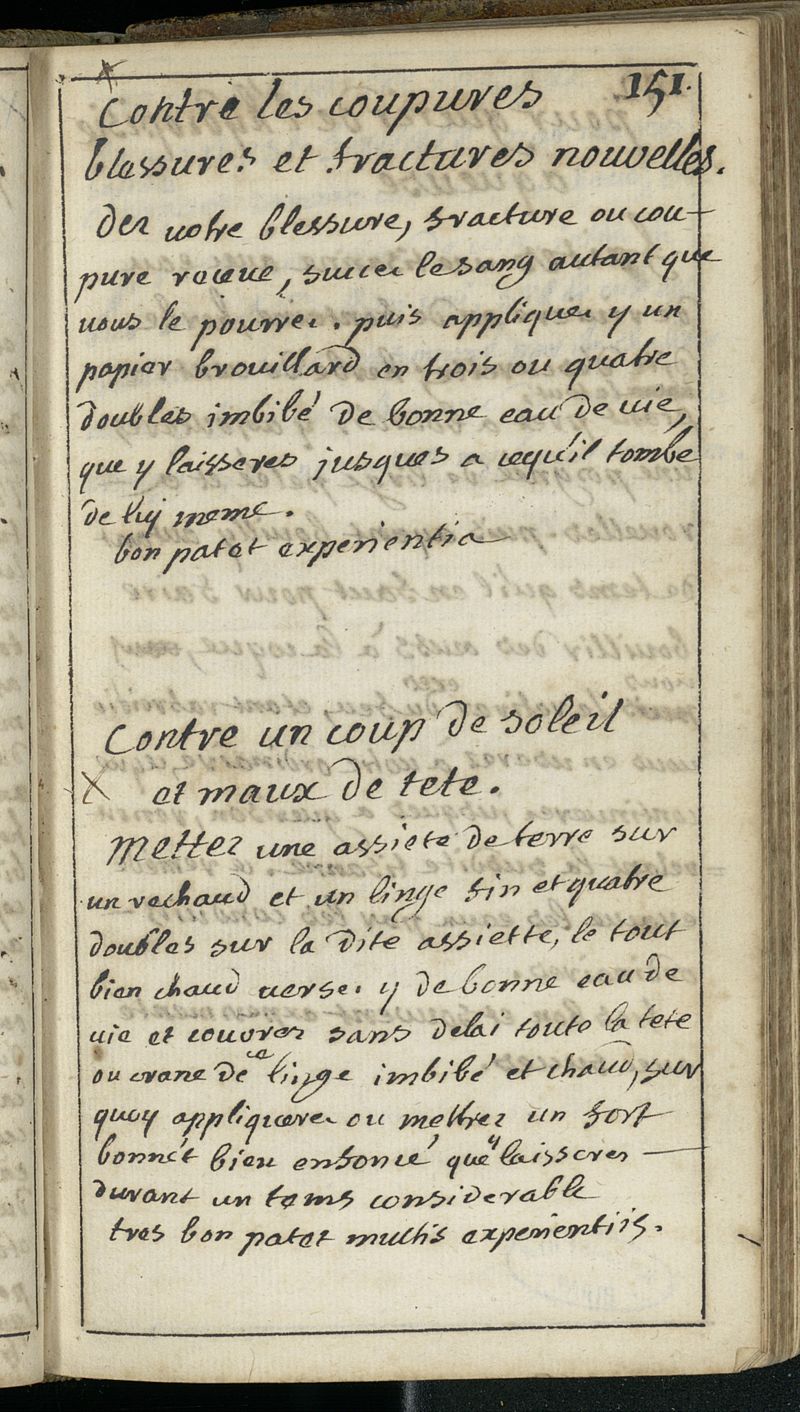 151.
Contre les coupures
blessures et fractures nouvelles.
Dez votre blessure, fracture ou cou-
pure receue, succez le sang autant que
vous le pourrez. puis appliquez y un
papier brouillard en trois ou quatre
doubles imbibé de bonne eau de vie,
que y laisseres jusques a cequ'il tombe
de luy meme.
bon patet experientia
Contre un coup de soleil
et maux de tete.
Mettez une assiete de terre sur
un rechaud et un linge fin et quatre
doubles sur la dite assiette, le tout
bien chaud versez y de bonne eau de
vie et couvrez sans delai toute la tete
ou crane de ce linge imbibé et chaud, sur
quoy appliquerez ou mettrez un fort
bonnét bien enfoncé que y laisseres
durant un tems considerable
tres bon patet multis experientiis.